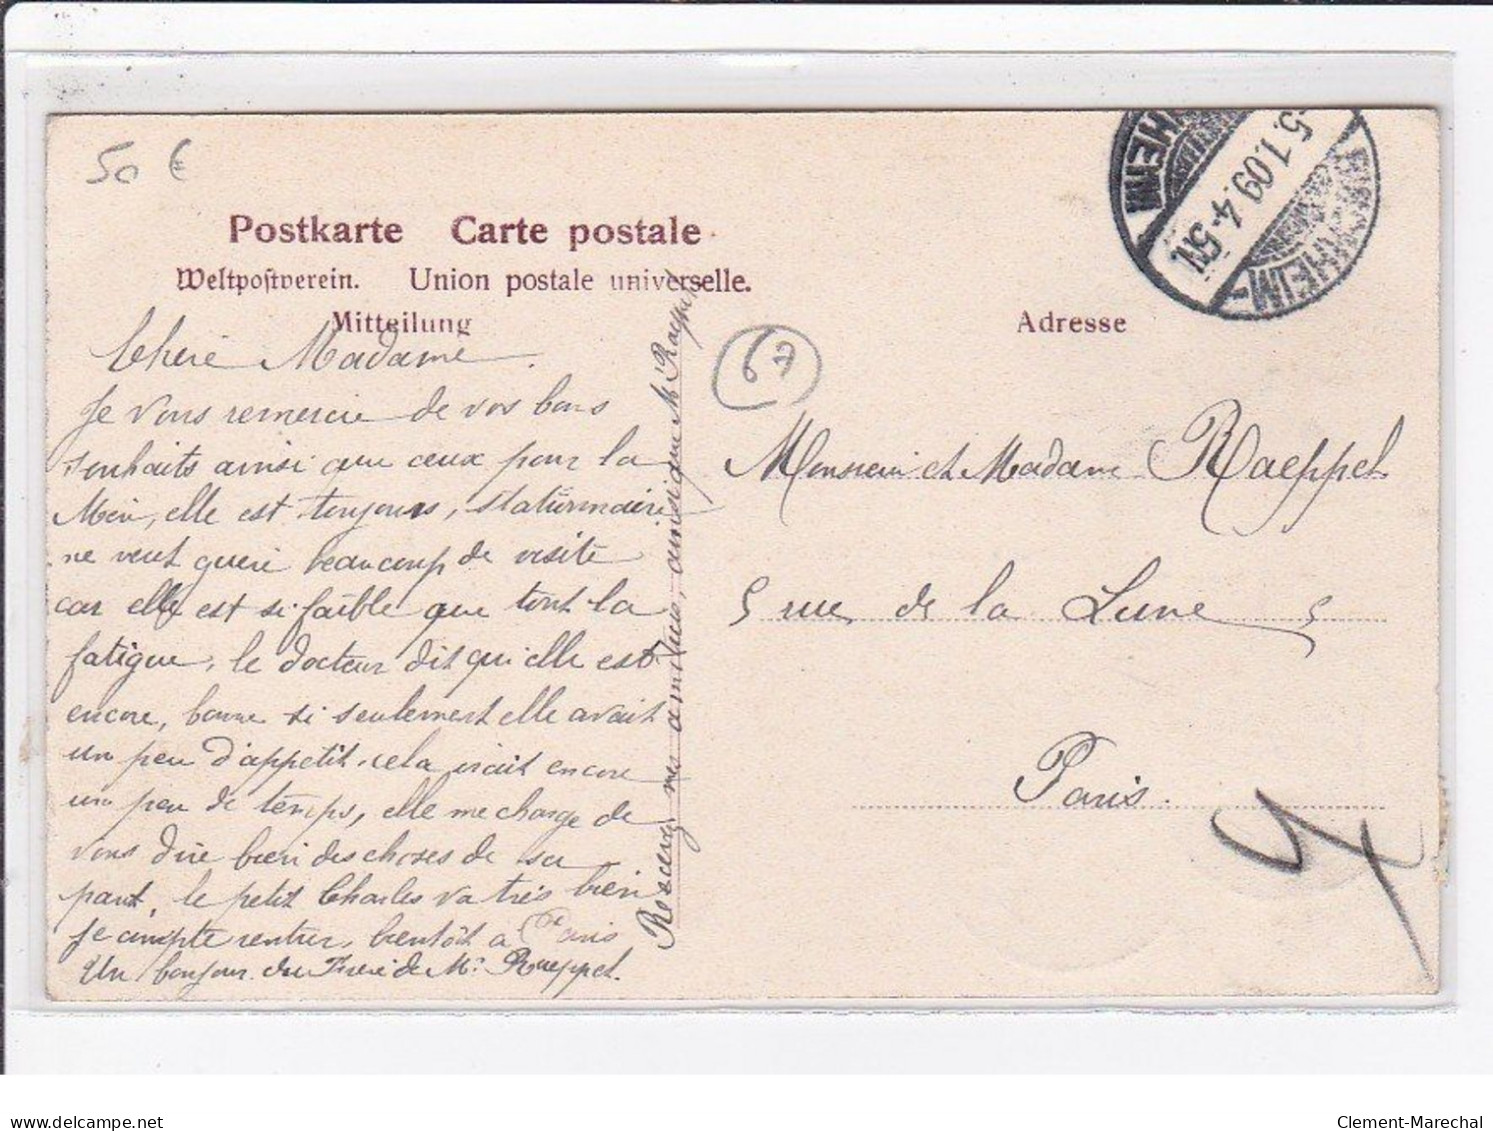 50 €
Postkarte Carte postale
Weltpostverein. Union postale universelle.
Mitteilung
Adresse
HEIM
5.1.09.4-5N.
HEIM
67
Chere Madame.
Je vous remercie de vos bons
souhaits ainsi que ceux pour la
elle est toujours, stationnaire
ne veut guere beaucoup de visite
car elle est si faible que tout la
fatigue, le docteur dit qu'elle est
encore, bonne si seulement elle avait
un peu d'appetit. cela irait encore
un peu de temps, elle me charge de
vous dire bien des choses de sa
part, le petit Charles va très bien
Je compte rentrer, bientôt a Paris
Un bonjour du Frere de Mr. Raeppel.
Recevez mes amities, ainsi que Mr Raeppel
Monsieur et Madame Raeppel
5 rue de la Lune 5
Paris.
Clement-Marechal